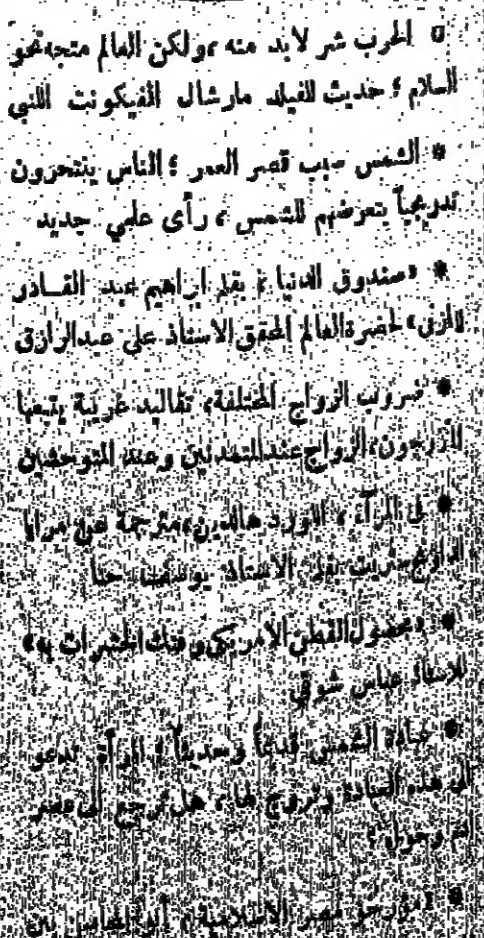 ▫ الحرب شر لابد منه ، ولكن العالم متجه نحو
السلام ؛ حديث للفيلد مارشال الفيكونت اللنبي
* الشمس سبب قصر العمر ؛ الناس ينتحرون
تدريجياً بتعرضهم للشمس ، رأى علمي جديد
* «صندوق الدنيا ؛ بقلم ابراهيم عبد القادر
المازنى» لحضرة العالم المحقق الاستاذ على عبدالرازق
* ضروب الزواج المختلفة ، تقاليد غريبة يتبعها
المتزوجون ، الزواج عند المتمدنين وعند المتوحشين
* فى المرآة ، اللورد هالدين ، مترجمة عن مرايا
داوننج ستريت بقلم الاستاذ يوسف حنا
* «محصول القطن الامريكى وفتك الحشرات به»
للاستاذ عباس شوقى
* عبادة الشمس قديماً وحديثاً ؛ المرأة تدعو
الى هذه العبادة وتروج لها ، هل نرجع الى عصر
* مؤرخو مصر الاسلامية ، أبو المحاسن بن